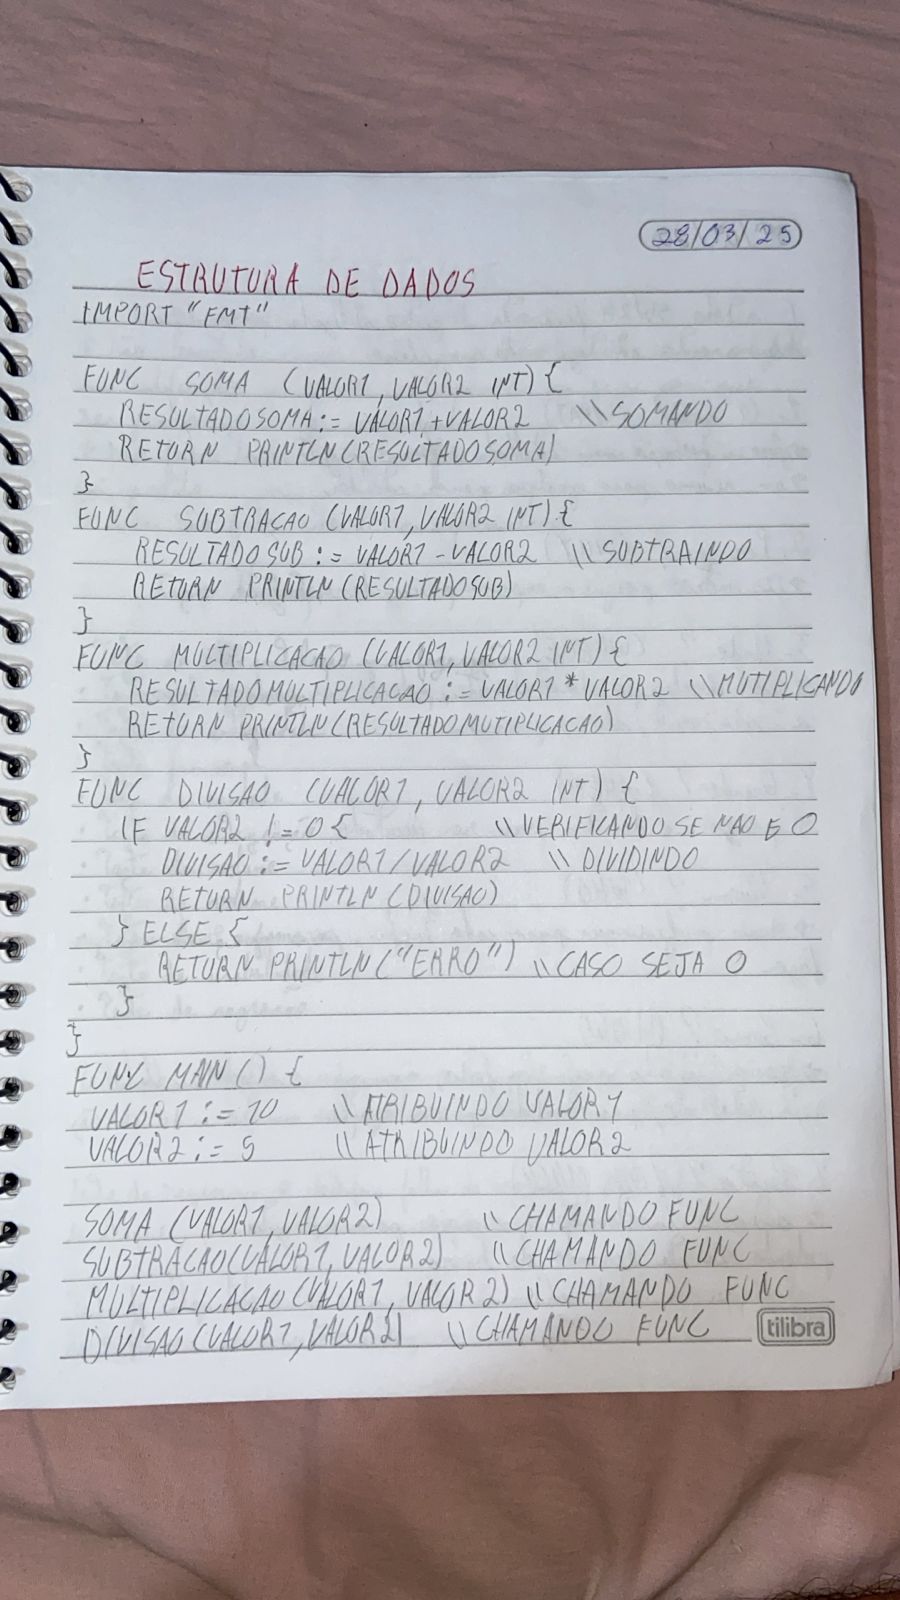 28/03/25
ESTRUTURA DE DADOS
IMPORT "FMT"
FUNC SOMA (VALOR1, VALOR2 INT) {
RESULTADOSOMA := VALOR1 + VALOR2 \\SOMANDO
RETURN PRINTLN(RESULTADOSOMA)
}
FUNC SUBTRACAO (VALOR1, VALOR2 INT) {
RESULTADOSUB := VALOR1 - VALOR2 \\SUBTRAINDO
RETURN PRINTLN(RESULTADOSUB)
}
FUNC MULTIPLICACAO (VALOR1, VALOR2 INT) {
RESULTADOMULTIPLICACAO := VALOR1 * VALOR2 \\MUTIPLICANDO
RETURN PRINTLN(RESULTADOMUTIPLICACAO)
}
FUNC DIVISAO (VALOR1, VALOR2 INT) {
IF VALOR2 != 0 { \\VERIFICANDO SE NAO E 0
DIVISAO := VALOR1/VALOR2 \\ DIVIDINDO
RETURN PRINTLN(DIVISAO)
} ELSE {
RETURN PRINTLN("ERRO") \\CASO SEJA 0
}
}
FUNC MAIN() {
VALOR1 := 10 \\ATRIBUINDO VALOR1
VALOR2 := 5 \\ATRIBUINDO VALOR2
SOMA (VALOR1, VALOR2) \\CHAMANDO FUNC
SUBTRACAO(VALOR1, VALOR2) \\CHAMANDO FUNC
MULTIPLICACAO(VALOR1, VALOR2) \\CHAMANDO FUNC
DIVISAO(VALOR1, VALOR2) \\CHAMANDO FUNC
tilibra